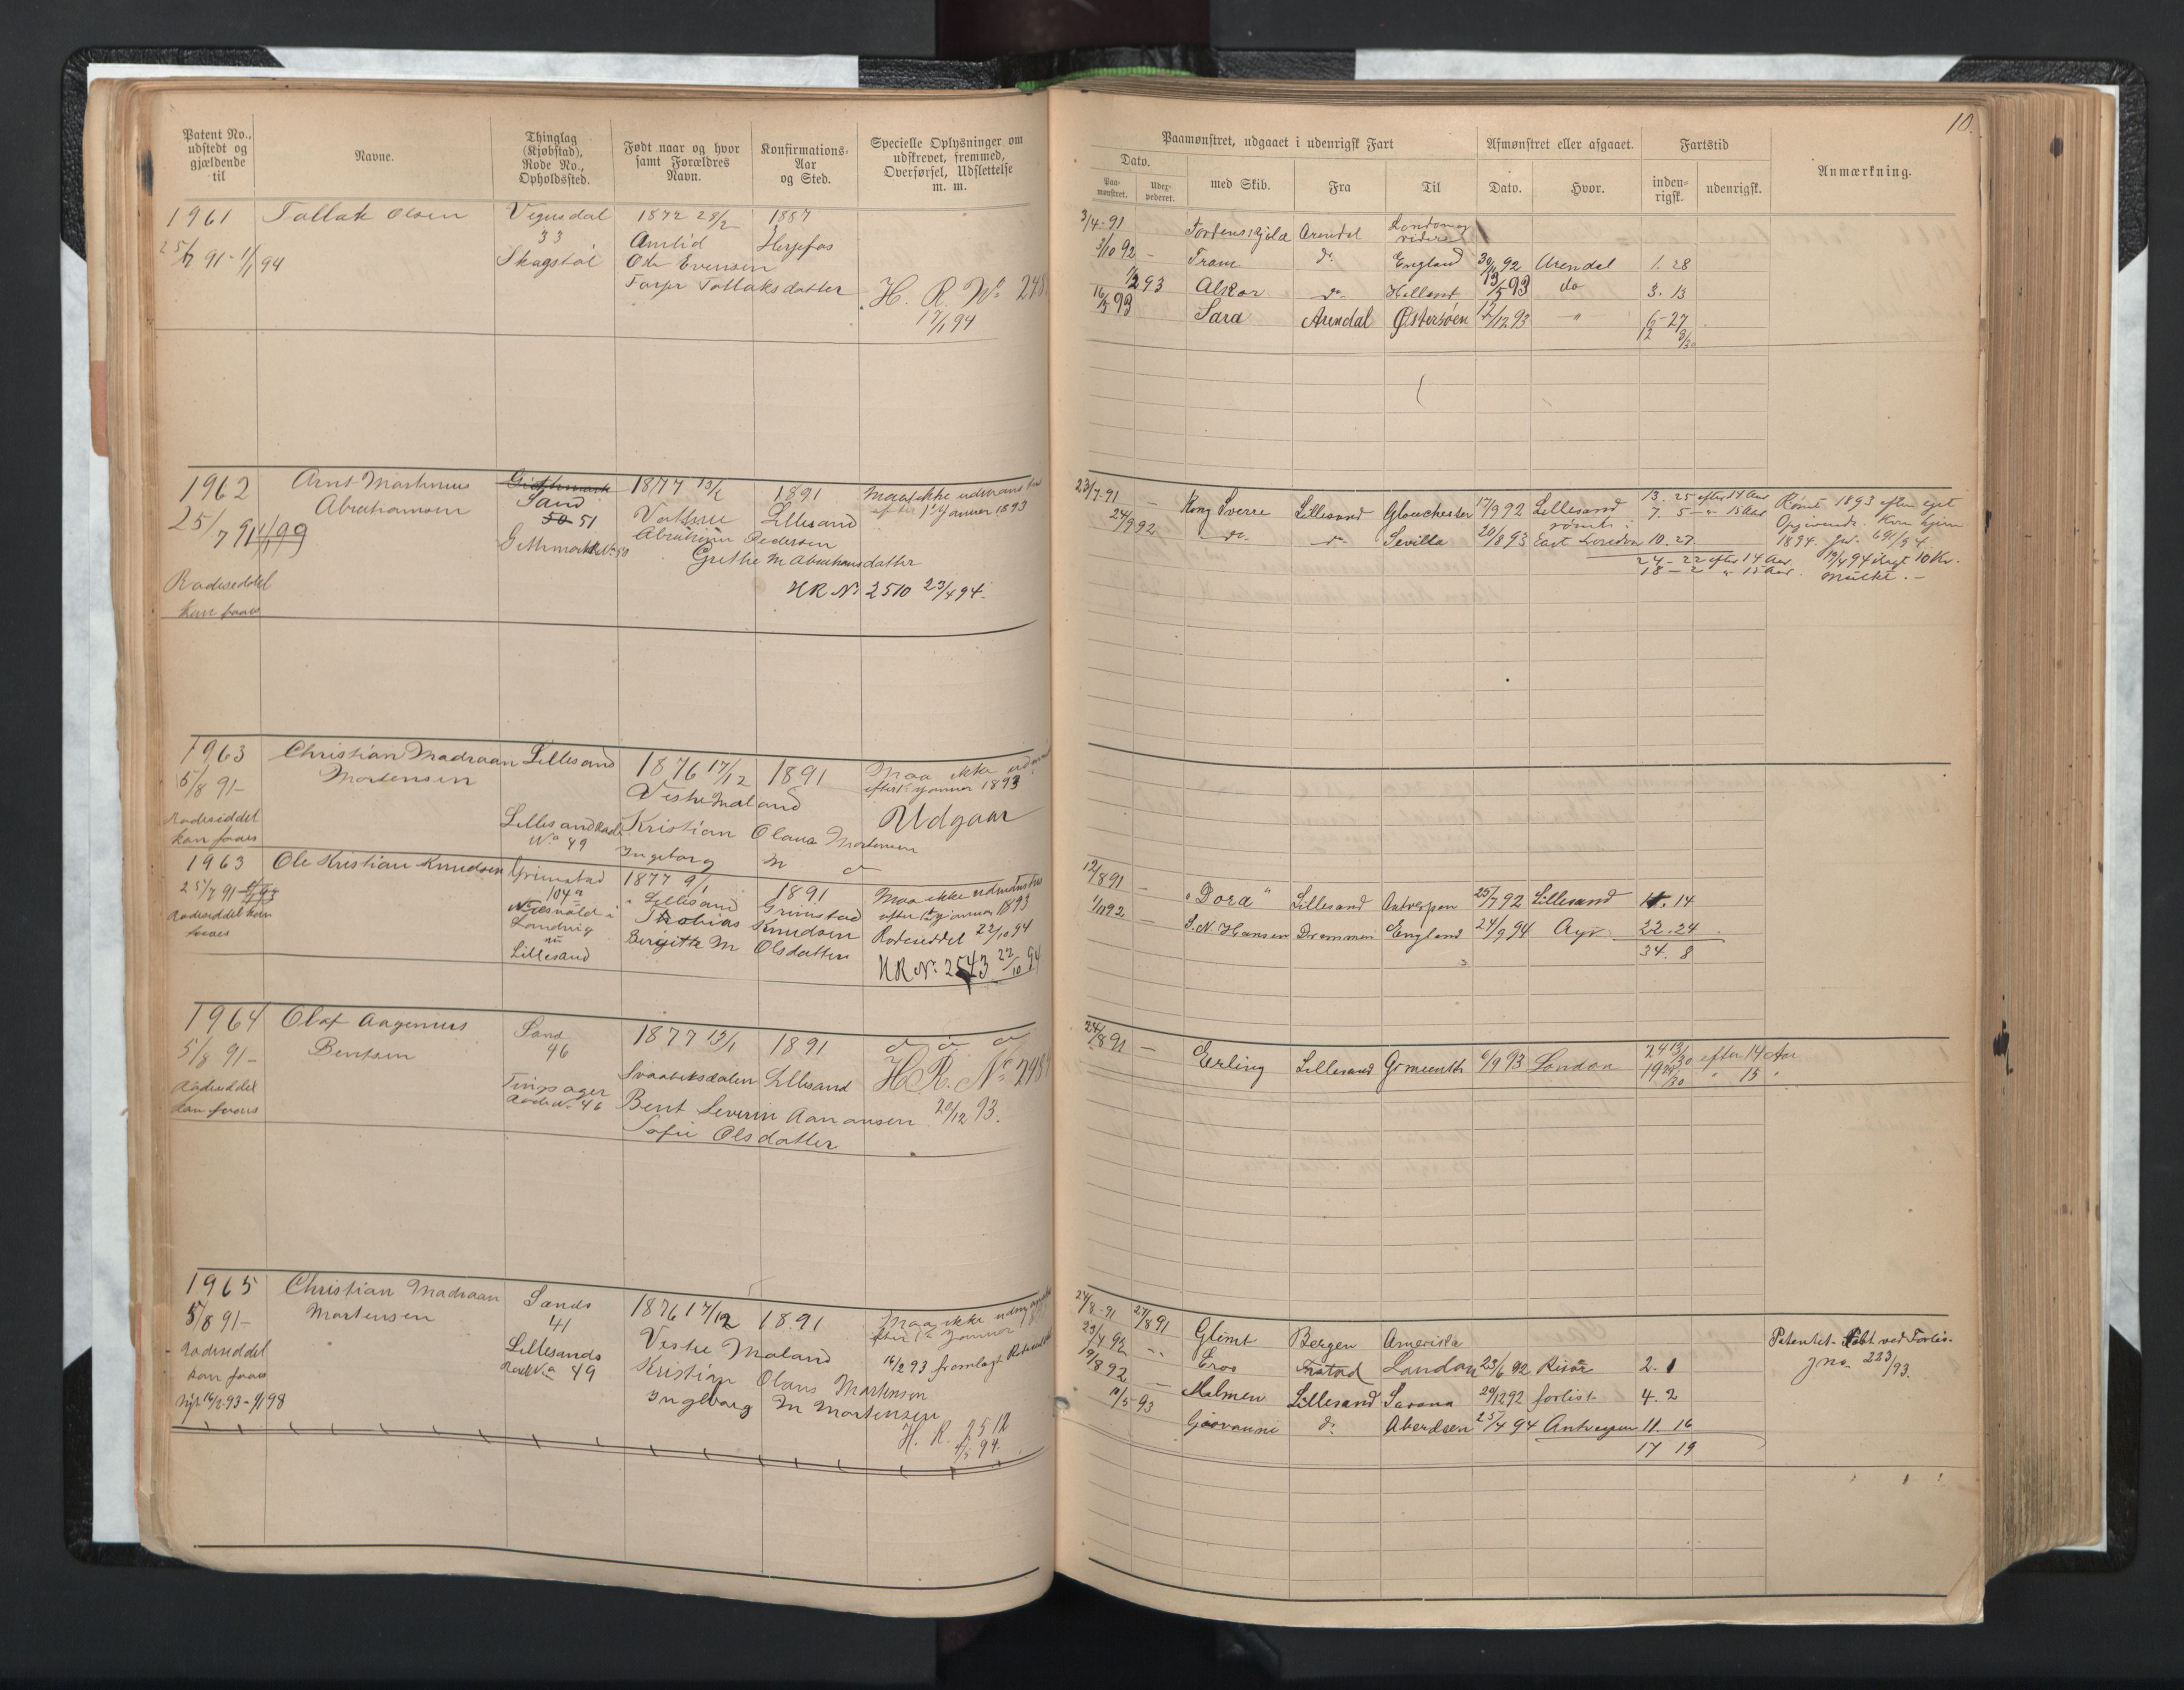 10.
Patent No., udstedt og gjældende til
Navne.
Thinglag (Kjøbstad), Rode No., Opholdssted.
Født naar og hvor samt Forældres Navn.
Konfirmations-Aar og Sted.
Specielle Oplysninger om udskrevet, fremmed, Overførsel, Udslettelse m. m.
1961 Tallak Olsen Vegusdal 1872 28/2 1887
25/7 91 - 1/1 94 33 Amlid Herefos
Skagstøl Ole Evensen
Targer Tallaksdatter H. R. No 248
17/1 94
1962 Arnt Martinius Sand 1877 13/2 1891 Maa ikke udmønstres
Abrahamsen 50 51 Vallesæ Lillesand efter 1ste Januar 1893
25/7 91 1/1 99 Abraham Pedersen
Grethe M Abrahamsdatter
Rodeseddel HR No 2510 23/4 94.
kan faaes
1963 Christian Madraan Lillesand 1876 17/12 1891 Maa ikke
5/8 91- Mortensen Vestre Maland efter 1ste Januar 1893
Rodeseddel Lillesand Rode Kristian Olaus Mortensen Udgaar
kan faaes No 49 Ingeborg M do
1963 Ole Kristian Knudsen Grimstad 1877 9/1 1891 Maa ikke udmønstres
25/7 91 104 Lillesand Grimstad efter 1ste Januar 1893
Rodeseddel kan i Tobias Knudsen Rodeseddel 22/10 94
faaes Landvig Birgitte M Olsdatter
nu
Lillesand HR No 2543 22/10 94
1964 Olaf Aagenius Sand 1877 13/1 1891 do do do
5/8 91- Bentsen 46 Lillesand H.R. No 248
Rodeseddel Tingsager Bent Severin Aanonsen 20/12 93.
kan faaes Rode No 46 Sofie Olsdatter
1965 Christian Madraan Sands 1876 17/12 1891 Maa ikke
5/8 91- Mortensen 41 Vestre Moland efter 1ste Januar
Rodeseddel Lillesands Kristian Olaus Mortensen 16/2 93 fremlagt
kan faaes Rode No 49 Ingeborg M Mortensen
Nyt 16/2 93 - 1/1 98 H. R. 2512
94.
Paamønstret, udgaaet i udenrigsk Fart
Afmønstret eller afgaaet.
Fartstid
Anmærkning.
Dato.
Paa-mønstret.
med Skib.
Fra
Til
Dato.
Hvor.
inden-rigsk.
udenrigsk.
3/4-91 Tordenskjold Arendal London og videre
3/10 92 - Fram do England 30/11 92 Arendal 1. 28
1/2 93 Alkor do Holland 13/5 93 do 3. 13
16/5 93 Sara Arendal Østersøen 12/12 93 " 6-27
23/7-91 - Kong Sverre Lillesand Glouchester 17/9 92 Lillesand 13. 25 efter 14 Aar Rømt 1893 efter eget
24/9 92 do do Sevilla 20/8 93 rømt i East London 7. 5 - " 15 Aar Opgivende. Kom hjem
10. 27. 1894.
24-22 efter 14 Aar 19/4 94 ilagt 10 Kr.
18-2 " 15 Aar. Mulkt.-
12/8 91 - "Dora" Lillesand Antverpen 25/7 92 Lillesand 11. 14
1/11 92 - S.N. Hansen Drammen England 24/9 94 Ayr 22. 24
34. 8
24/8 91 - Erling Lillesand Grmeenth 6/9 93 London 24 13/30 efter 14 Aar
19 28/30 " 15 "
24/8-91 27/8 91 Glimt Bergen Amerika Patentet tabt ved Forlis.
23/4 92 -- Eros London 23/6 92 Risør 2. 1 jno. 223/93.
19/8 92 - Malmen Lillesand Savona 20/12 92 forlist 4. 2
10/5 93 Giovanni do Aberdeen 25/4 94 Antverpen 11. 16
17 19